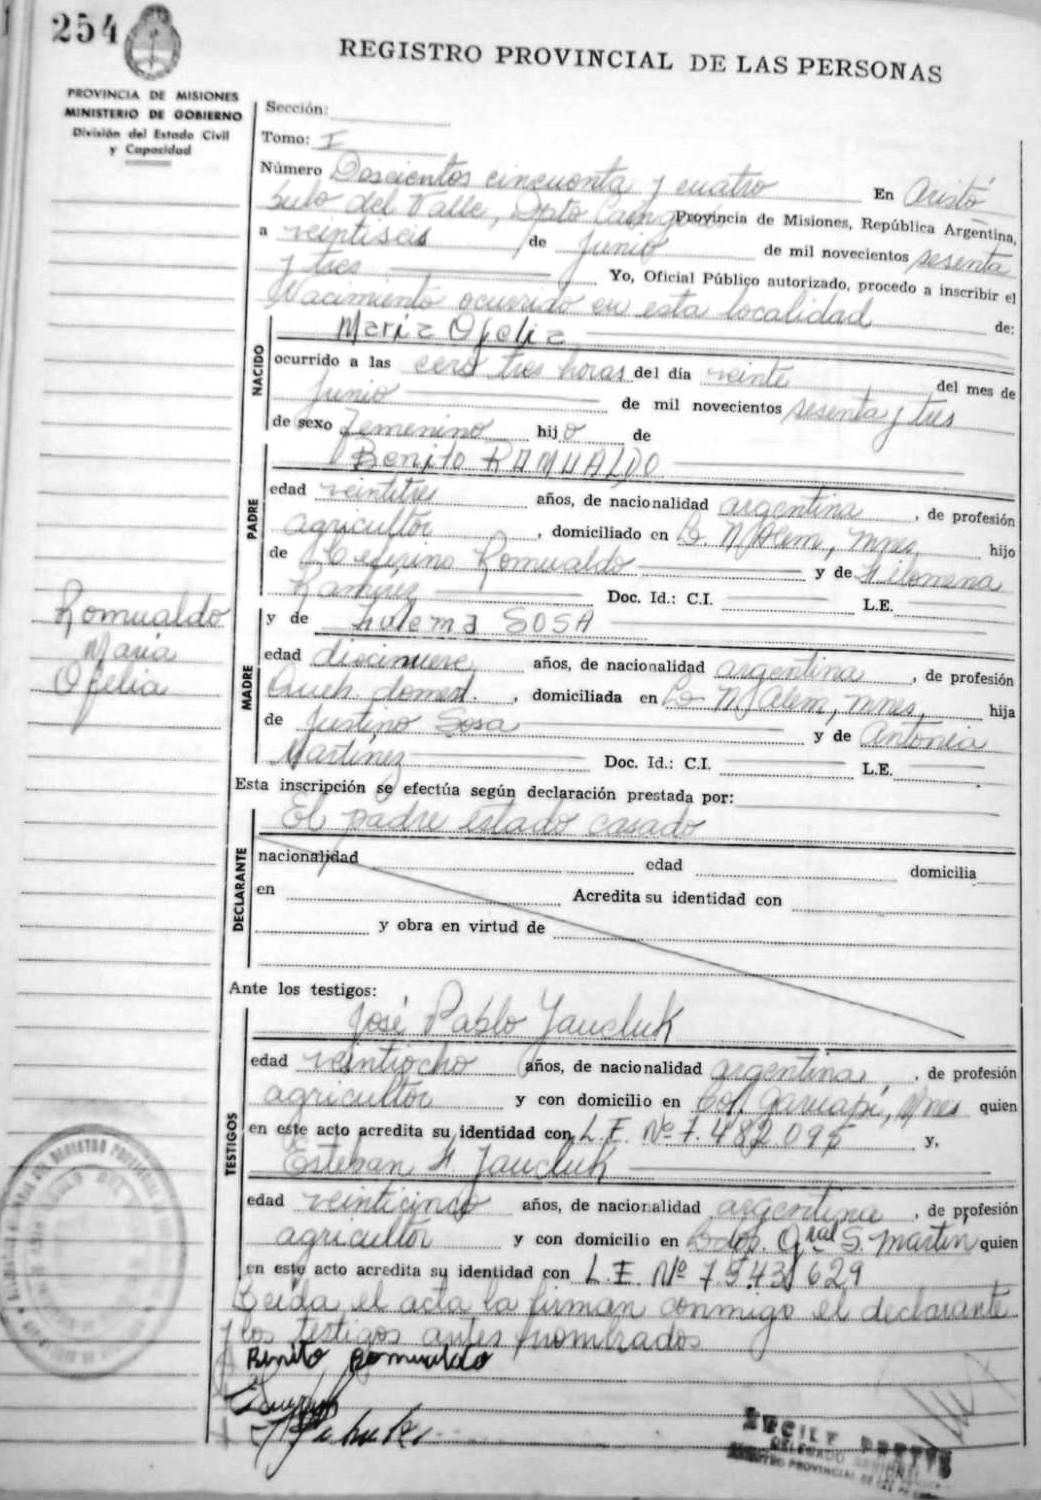 254
REGISTRO PROVINCIAL DE LAS PERSONAS
PROVINCIA DE MISIONES
MINISTERIO DE GOBIERNO
División del Estado Civil
y Capacidad
Sección:
Tomo: I
Número Doscientos cincuenta y cuatro En Aristó
bulo del Valle, Dpto Cainguás Provincia de Misiones, República Argentina,
a veintiseis de Junio de mil novecientos sesenta
y tres Yo, Oficial Público autorizado, procedo a inscribir el
Nacimiento ocurrido en esta localidad de:
NACIDO
María Ofelia
ocurrido a las cero tres horas del día veinte del mes de
Junio de mil novecientos sesenta y tres
de sexo Femenino hijo de
PADRE
Benito RAMUALDO
edad veintitres años, de nacionalidad argentina, de profesión
agricultor, domiciliado en L. N. Alem, Mnes, hijo
de Ceferino Romualdo y de Filomena
Ramírez Doc. Id.: C.I. L.E.
Romualdo
María
Ofelia
MADRE
y de Zulema SOSA
edad diecinueve años, de nacionalidad argentina, de profesión
Queh. domest., domiciliada en L. N. Alem, Mnes, hija
de Justino Sosa y de Antonia
Martínez Doc. Id.: C.I. L.E.
Esta inscripción se efectúa según declaración prestada por:
El padre estado casado
DECLARANTE
nacionalidad edad domicilia
en Acredita su identidad con
y obra en virtud de
Ante los testigos:
TESTIGOS
José Pablo Jaucluk
edad veintiocho años, de nacionalidad argentina, de profesión
agricultor y con domicilio en Col. Garuapí, Mnes quien
en este acto acredita su identidad con L.E. Nº 7.482.095 y,
Esteban H. Jaucluk
edad veinticinco años, de nacionalidad argentina, de profesión
agricultor y con domicilio en Gral S. Martín quien
en este acto acredita su identidad con L.E. Nº 7.543.629
Leida el acta la firman conmigo el declarante
y los testigos antes nombrados
Benito Romualdo
DELEGADO
REGISTRO PROVINCIAL DE LAS PERSONAS